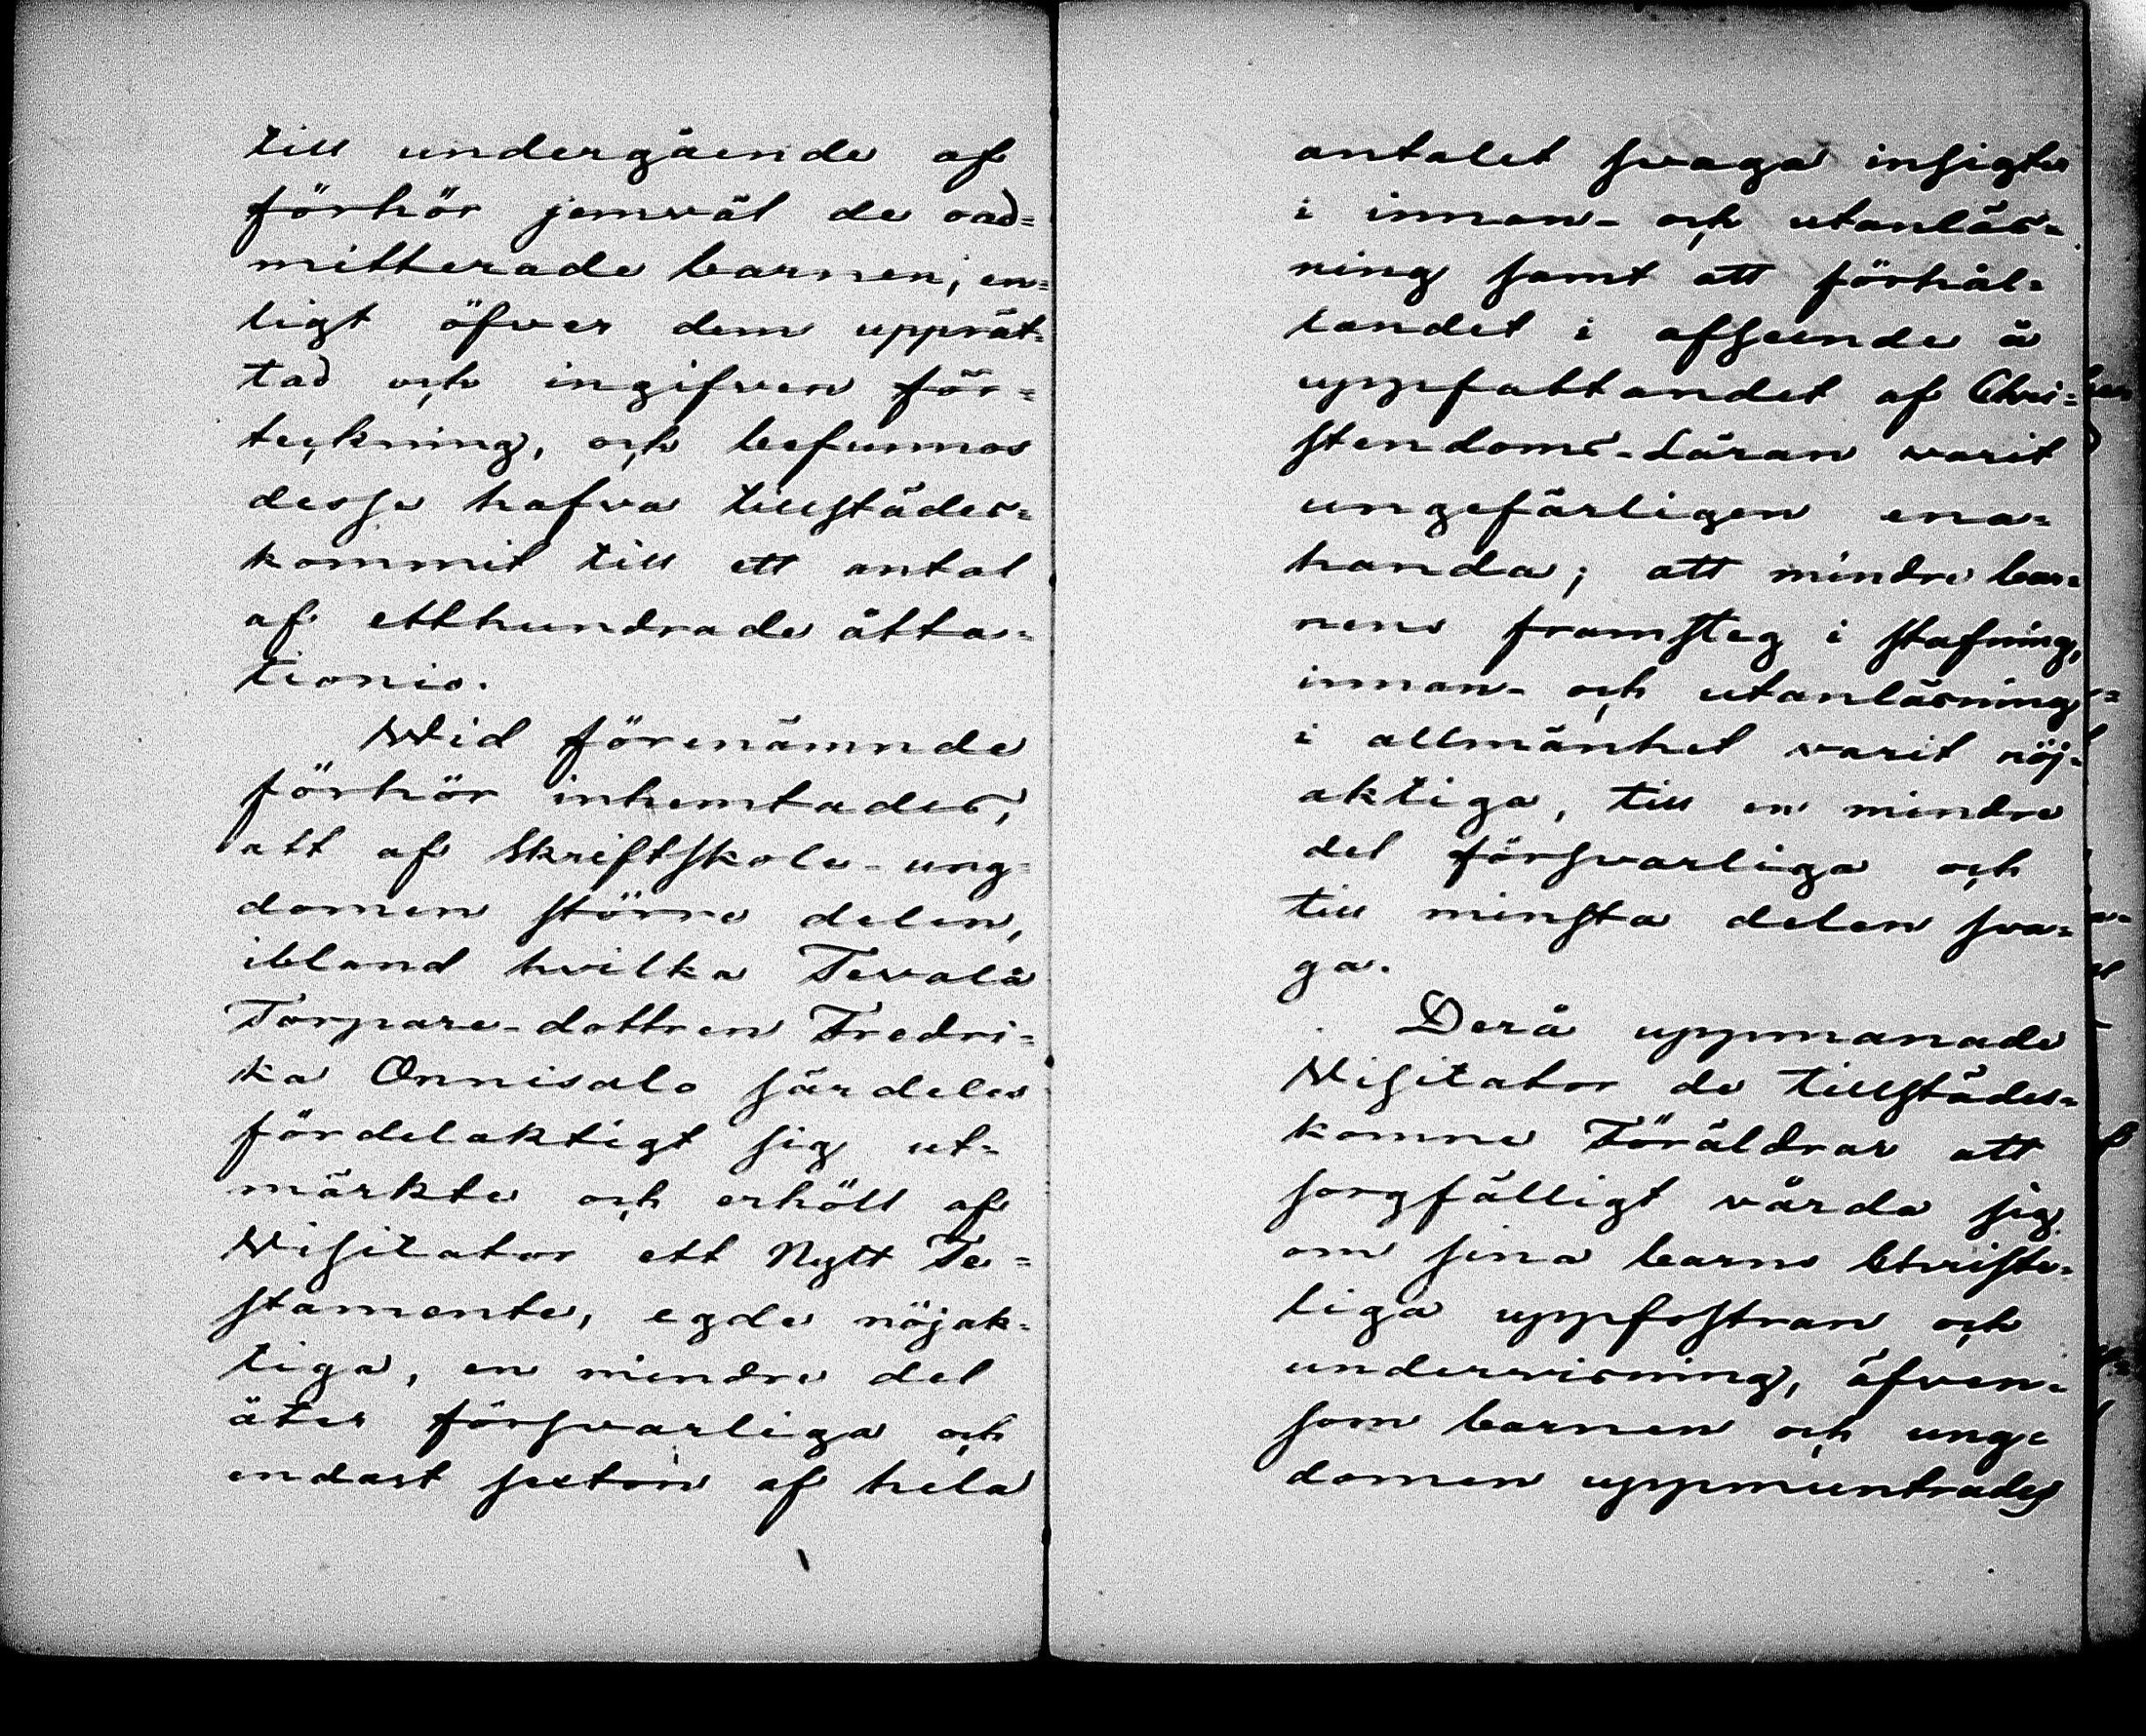 till undergående af
förhör jemväl de oad=
mitterade barnen, en=
ligt öfver dem upprät=
tad och ingifven för=
teckning, och befunnos
desse hafva tillstädes=
kommit till ett antal
af etthundrade åtta=
tionio.
Wid förenämnde
förhör inhemtades,
att af Skriftskole-ung=
domen större delen,
ibland hvilka Tevalå
Torpare-dottren Fredri=
ka Onnisalo särdeles
fördelaktigt sig ut=
märkte och erhöll af
Visitator ett Nytt Te=
stamente, egde nöjak=
tiga, en mindre del
åter försvarliga och
endast sexton af hela
antalet svaga insigter
i innan- och utanläs=
ning samt att förhål=
landet i afseende å
uppfattandet af Chri=
stendoms-Läran varit
ungefärligen ena=
handa; att mindre bar=
nens framsteg i stafning,
innan- och utanläsning
i allmänhet varit nöj=
aktiga, till en mindre
del försvarliga och
till minsta delen sva=
ga.
Derå uppmanade
Visitator de tillstädes=
komne Föräldrar att
sorgfälligt vårda sig
om sina barns Christe=
liga uppfostran och
undervisning, äfven=
som barnen och ung=
domen uppmuntrades